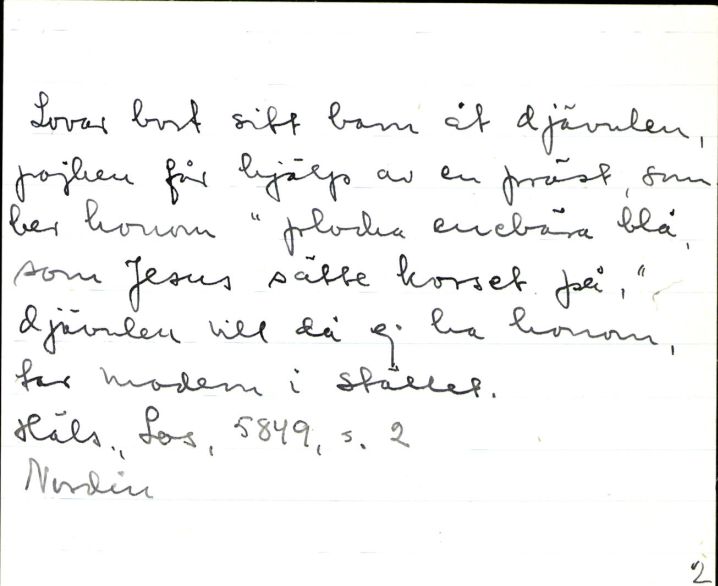 Lovar bort sitt barn åt djävulen,
pojken får hjälp av en präst, som
ber honom "plocka enebära blå,
som Jesus sätte korset på,"
djävulen vill då ej ha honom,
tar modern i stället.
Häls., Los, 5849, s. 2
Nordin
2